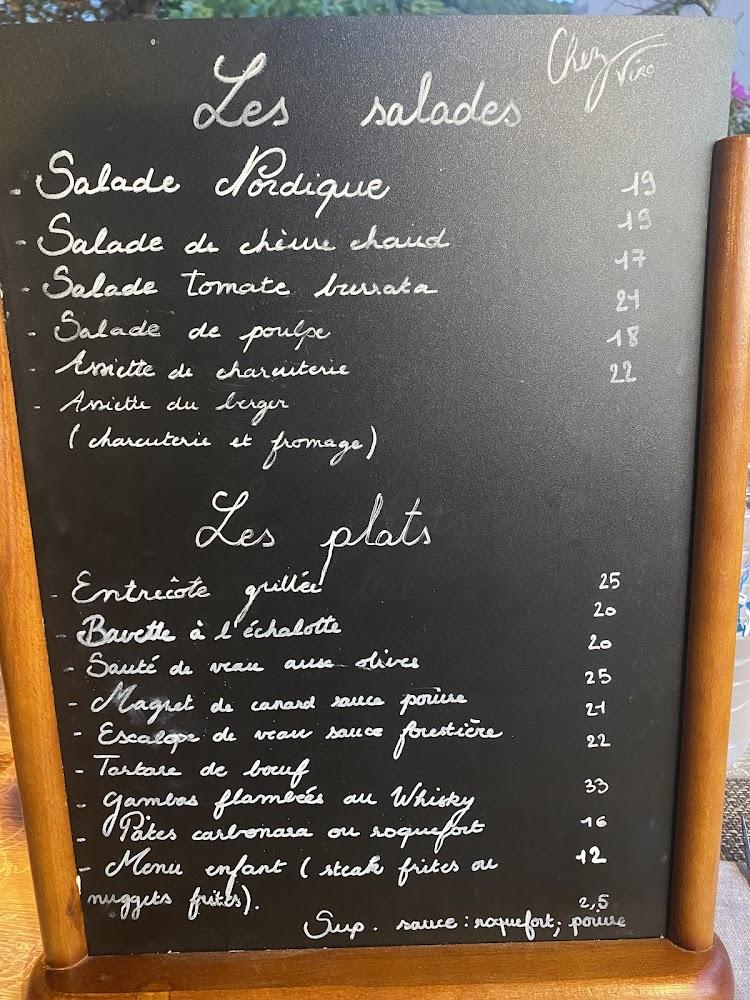 Chez Viro
Les salades
- Salade Nordique 19
- Salade de chèvre chaud 19
- Salade tomate burrata 17
- Salade de poulpe 21
- Assiette de charcuterie 18
- Assiette du berger 22
(charcuterie et fromage)
Les plats
- Entrecôte grillée 25
- Bavette à l'échalotte 20
- Sauté de veau aux olives 20
- Magret de canard sauce poivre 25
- Escalope de veau sauce forestière 21
- Tartare de bœuf 22
- Gambas flambées au Whisky 33
- Pâtes carbonara ou roquefort 16
- Menu enfant (steak frites ou 12
nuggets frites).
Sup. sauce : roquefort, poivre 2,5